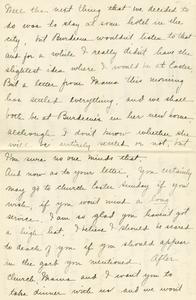 Well the next thing that we decided to
do was to stay at some hotel in the
city, but Burdene wouldn't listen to that
and for a while I really didn't have the
slightest idea where I would be at Easter.
But a letter from Mama this morning
has settled everything, and we shall
both be at Burdene's in her new home,
although I don't know whether she
will be entirely settled or not, but
I'm sure no one minds that.
And now as to your letter, You certainly
may go to church Easter Sunday if you
wish, if you won't mind a long
service. I am so glad you haven't got
a high hat, I believe I should be scared
to death of you if you should appear
in the garb you mentioned. After
church, Mama and I want you to
take dinner with us and we won't